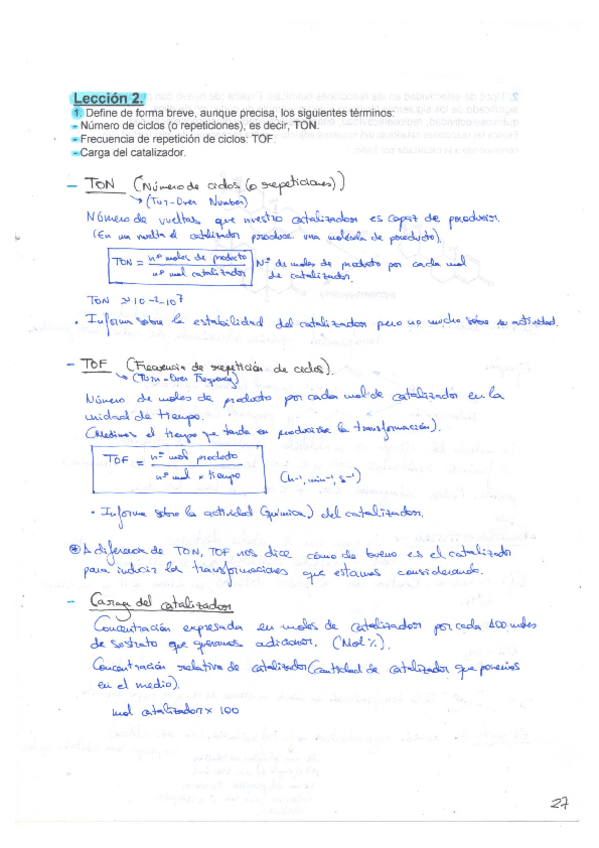 Lección 2.
1. Define de forma breve, aunque precisa, los siguientes términos:
- Número de ciclos (o repeticiones), es decir, TON.
- Frecuencia de repetición de ciclos: TOF.
- Carga del catalizador.
- TON (Número de ciclos (o repeticiones))
(Tur-Over Number)
Número de vueltas que nuestro catalizador es capaz de producir.
(En un vuelta el catalizador produce una molécula de producto).
TON = nº moles de producto / nº mol catalizador
Nº de moles de producto por cada mol de catalizador.
TON ≈ 10-2-10^7
• Informa sobre la estabilidad del catalizador pero no mucho sobre su actividad.
- TOF (Frecuencia de repetición de ciclos).
(Turn-Over Frequency)
Número de moles de producto por cada mol de catalizador en la
unidad de tiempo.
(Medimos el tiempo que tarda en producirse la transformación).
TOF = nº mol producto / nº mol × tiempo (h-1, min-1, s-1)
• Informa sobre la actividad (química) del catalizador.
A diferencia de TON, TOF nos dice cómo de bueno es el catalizador
para inducir las transformaciones que estamos considerando.
- Carga del catalizador
Concentración expresada en moles de catalizador por cada 100 moles
de sustrato que queramos adicionar. (Mol%).
Concentración relativa de catalizador (cantidad de catalizador que ponemos
en el medio).
mol catalizador × 100
27